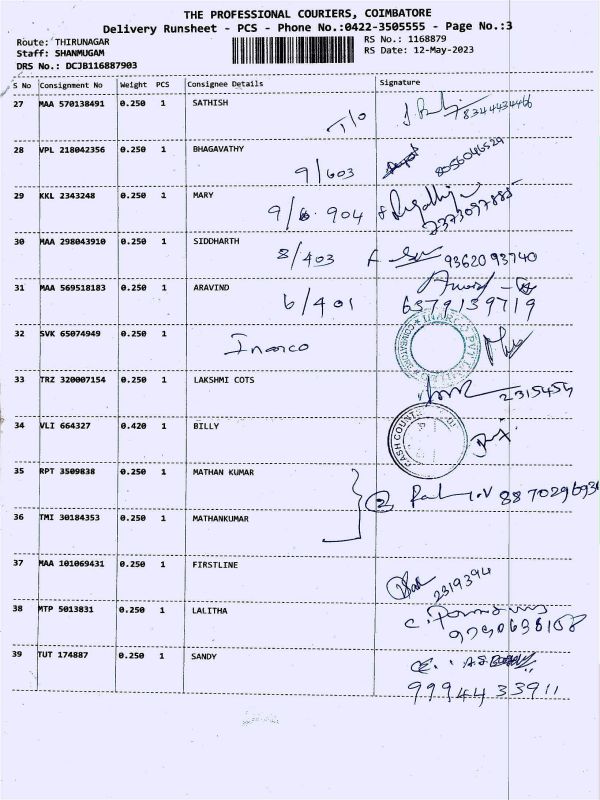 THE PROFESSIONAL COURIERS, COIMBATORE
Delivery Runsheet - PCS - Phone No.:0422-3505555 - Page No.:3
Route: THIRUNAGAR RS No.: 1168879
Staff: SHANMUGAM RS Date: 12-May-2023
DRS No.: DCJB116887903
S No Consignment No Weight PCS Consignee Details Signature
27 MAA 570138491 0.250 1 SATHISH
28 VPL 218042356 0.250 1 BHAGAVATHY
9/603 8056046529
29 KKL 2343248 0.250 1 MARY
904
30 MAA 298043910 0.250 1 SIDDHARTH
8/403 9362093740
31 MAA 569518183 0.250 1 ARAVIND
6/401 6379139719
32 SVK 65074949 0.250 1
Inarco
33 TRZ 320007154 0.250 1 LAKSHMI COTS
2315455
34 VLI 664327 0.420 1 BILLY
CASH COUNT
35 RPT 3509838 0.250 1 MATHAN KUMAR
36 TMI 30184353 0.250 1 MATHANKUMAR
37 MAA 101069431 0.250 1 FIRSTLINE
2319394
38 MTP 5013831 0.250 1 LALITHA
39 TUT 174887 0.250 1 SANDY
9994433911